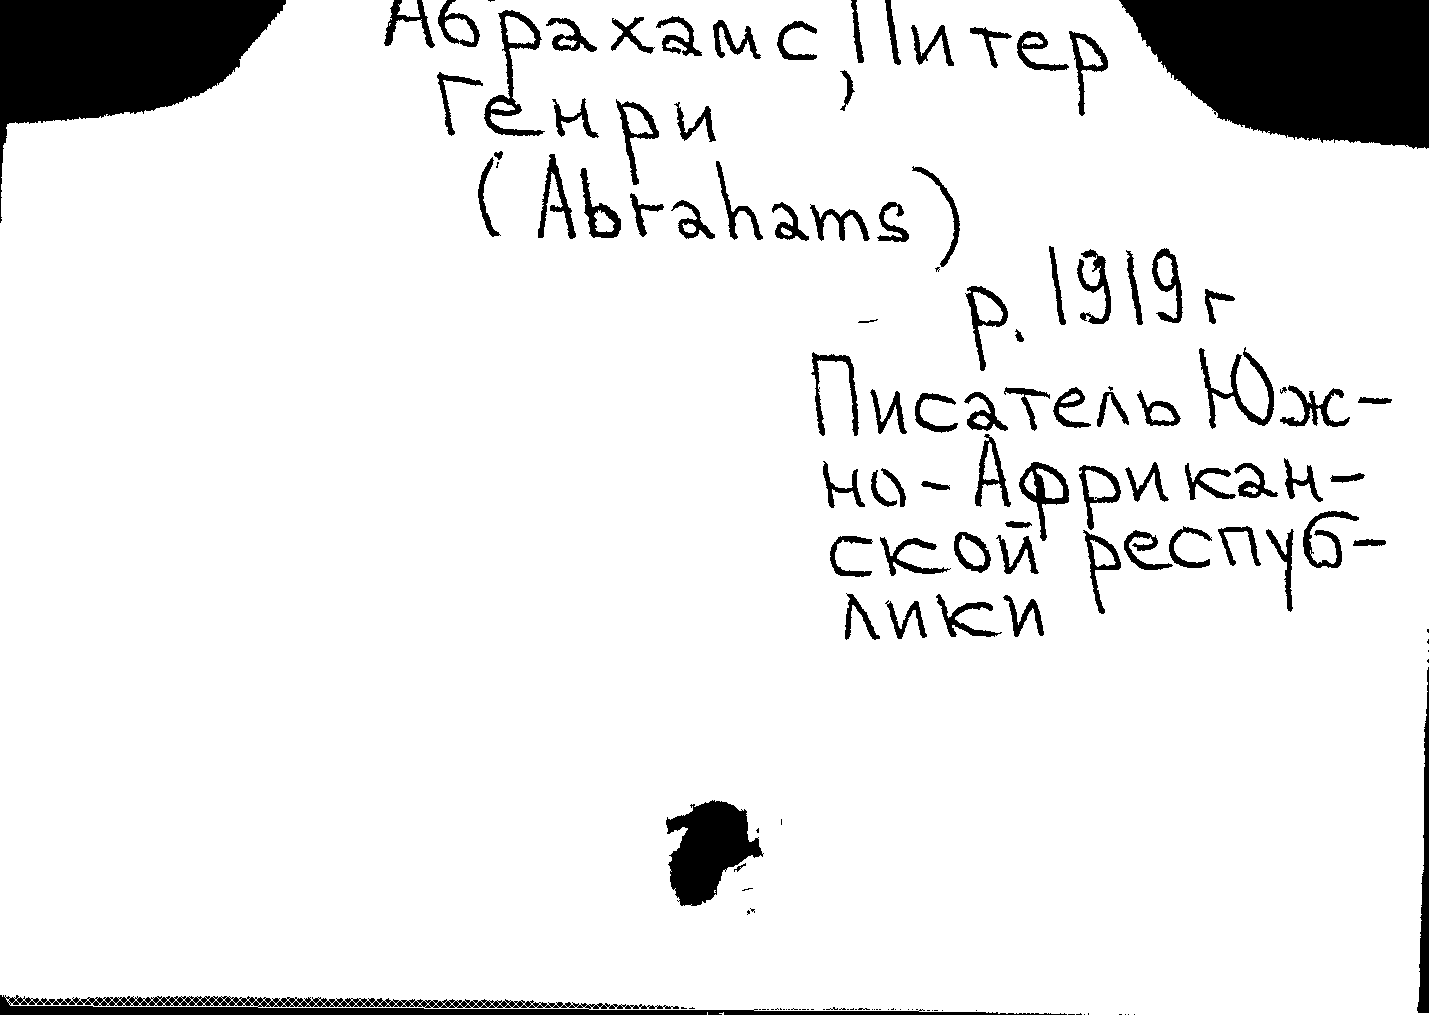 Абрахамс, Питер
Генри
(Abrahams)
р. 1919 г
Писатель Юж-
но-Африкан-
ской респуб-
лики